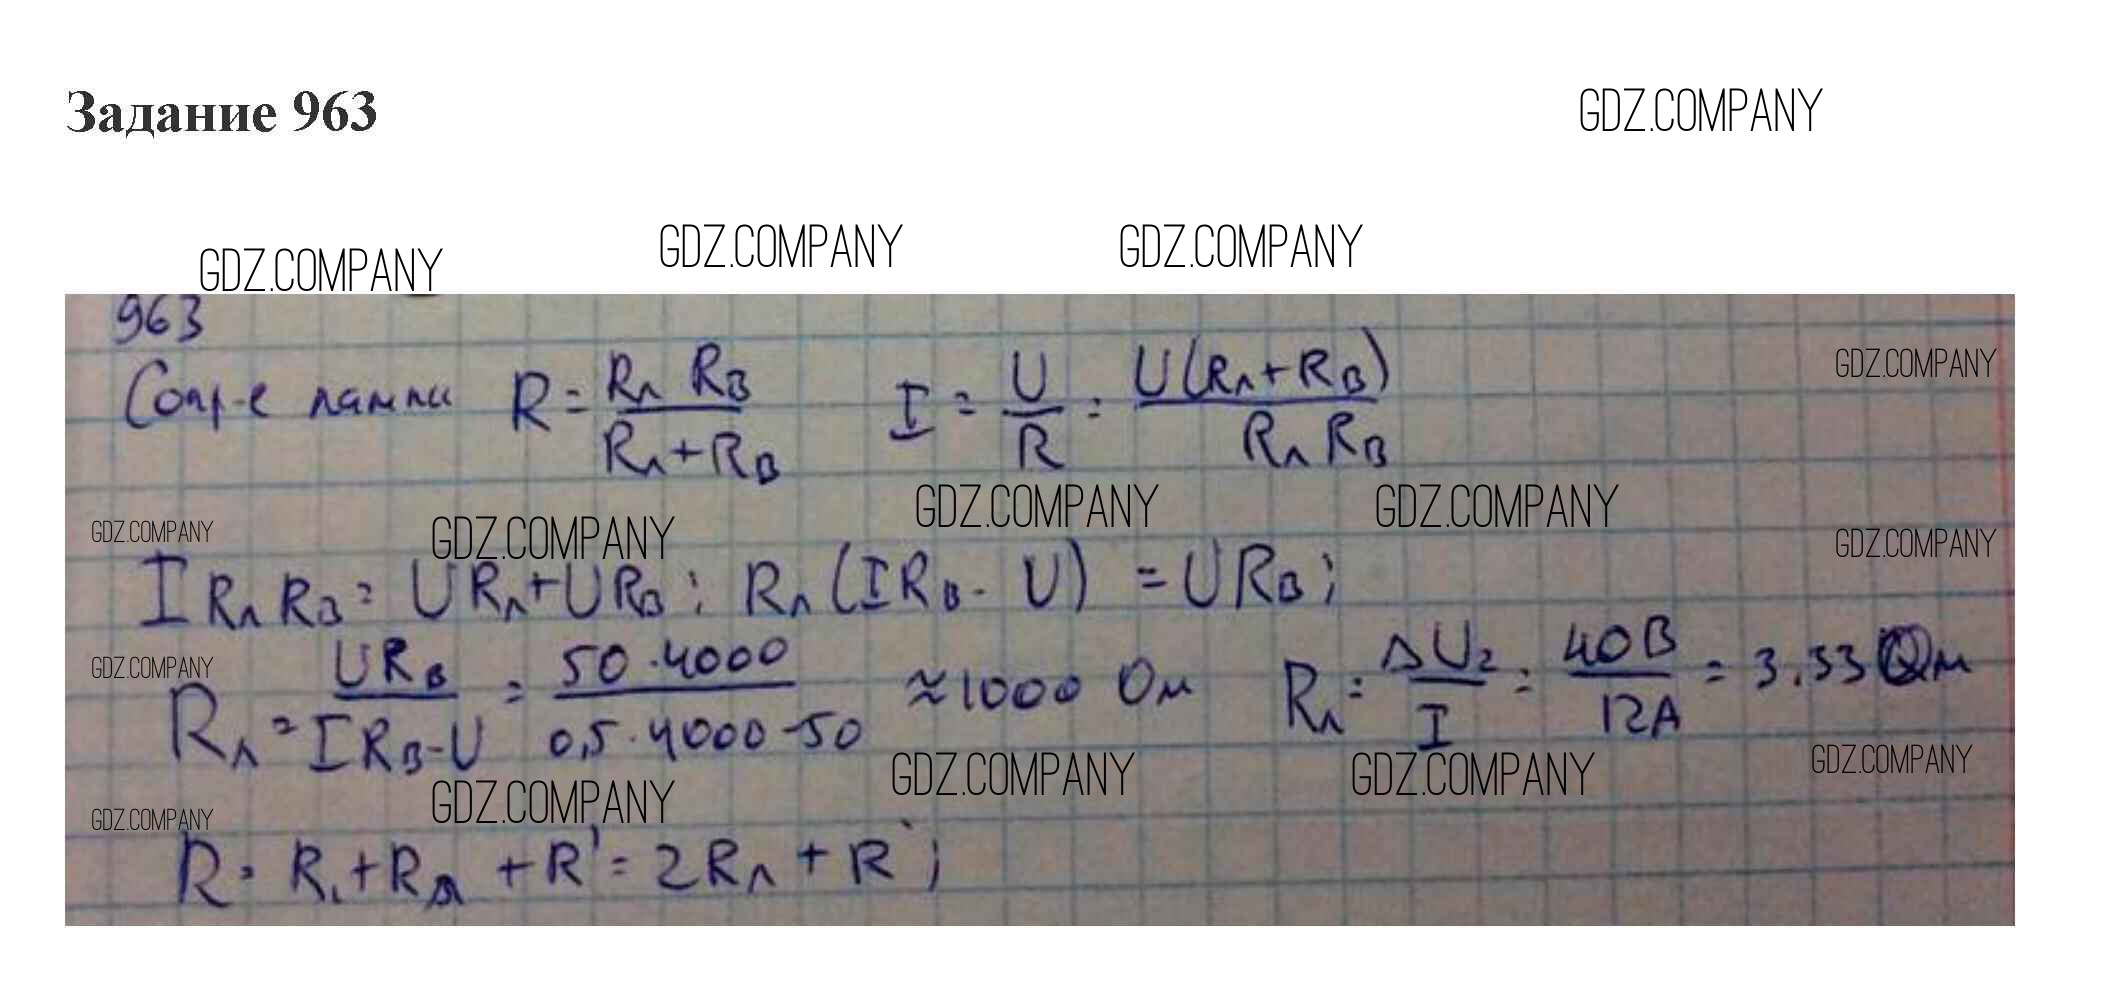 Задание 963
GDZ.COMPANY
GDZ.COMPANY GDZ.COMPANY GDZ.COMPANY
963
Сопр-е лампы R = Rл Rв / Rл + Rв I = U / R = U(Rл + Rв) / Rл Rв
GDZ.COMPANY
GDZ.COMPANY GDZ.COMPANY GDZ.COMPANY GDZ.COMPANY GDZ.COMPANY
I Rл Rв = URл + URв ; Rл (IRв - U) = URв ;
GDZ.COMPANY
Rл = URв / IRв - U = 50 · 4000 / 0,5 · 4000 - 50 ≈ 1000 Ом Rл = ΔU₂ / I = 40В / 12А = 3.33 Ом
GDZ.COMPANY GDZ.COMPANY GDZ.COMPANY GDZ.COMPANY GDZ.COMPANY
R = R₁ + Rл + R' = 2Rл + R' ;